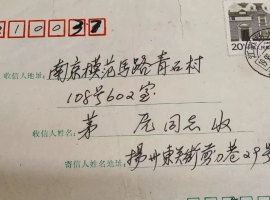 210037
收信人地址: 南京模范马路青石村
108号602室
收信人姓名: 茅 同志收
寄信人姓名地址: 扬州东关街剪刀巷29号
20